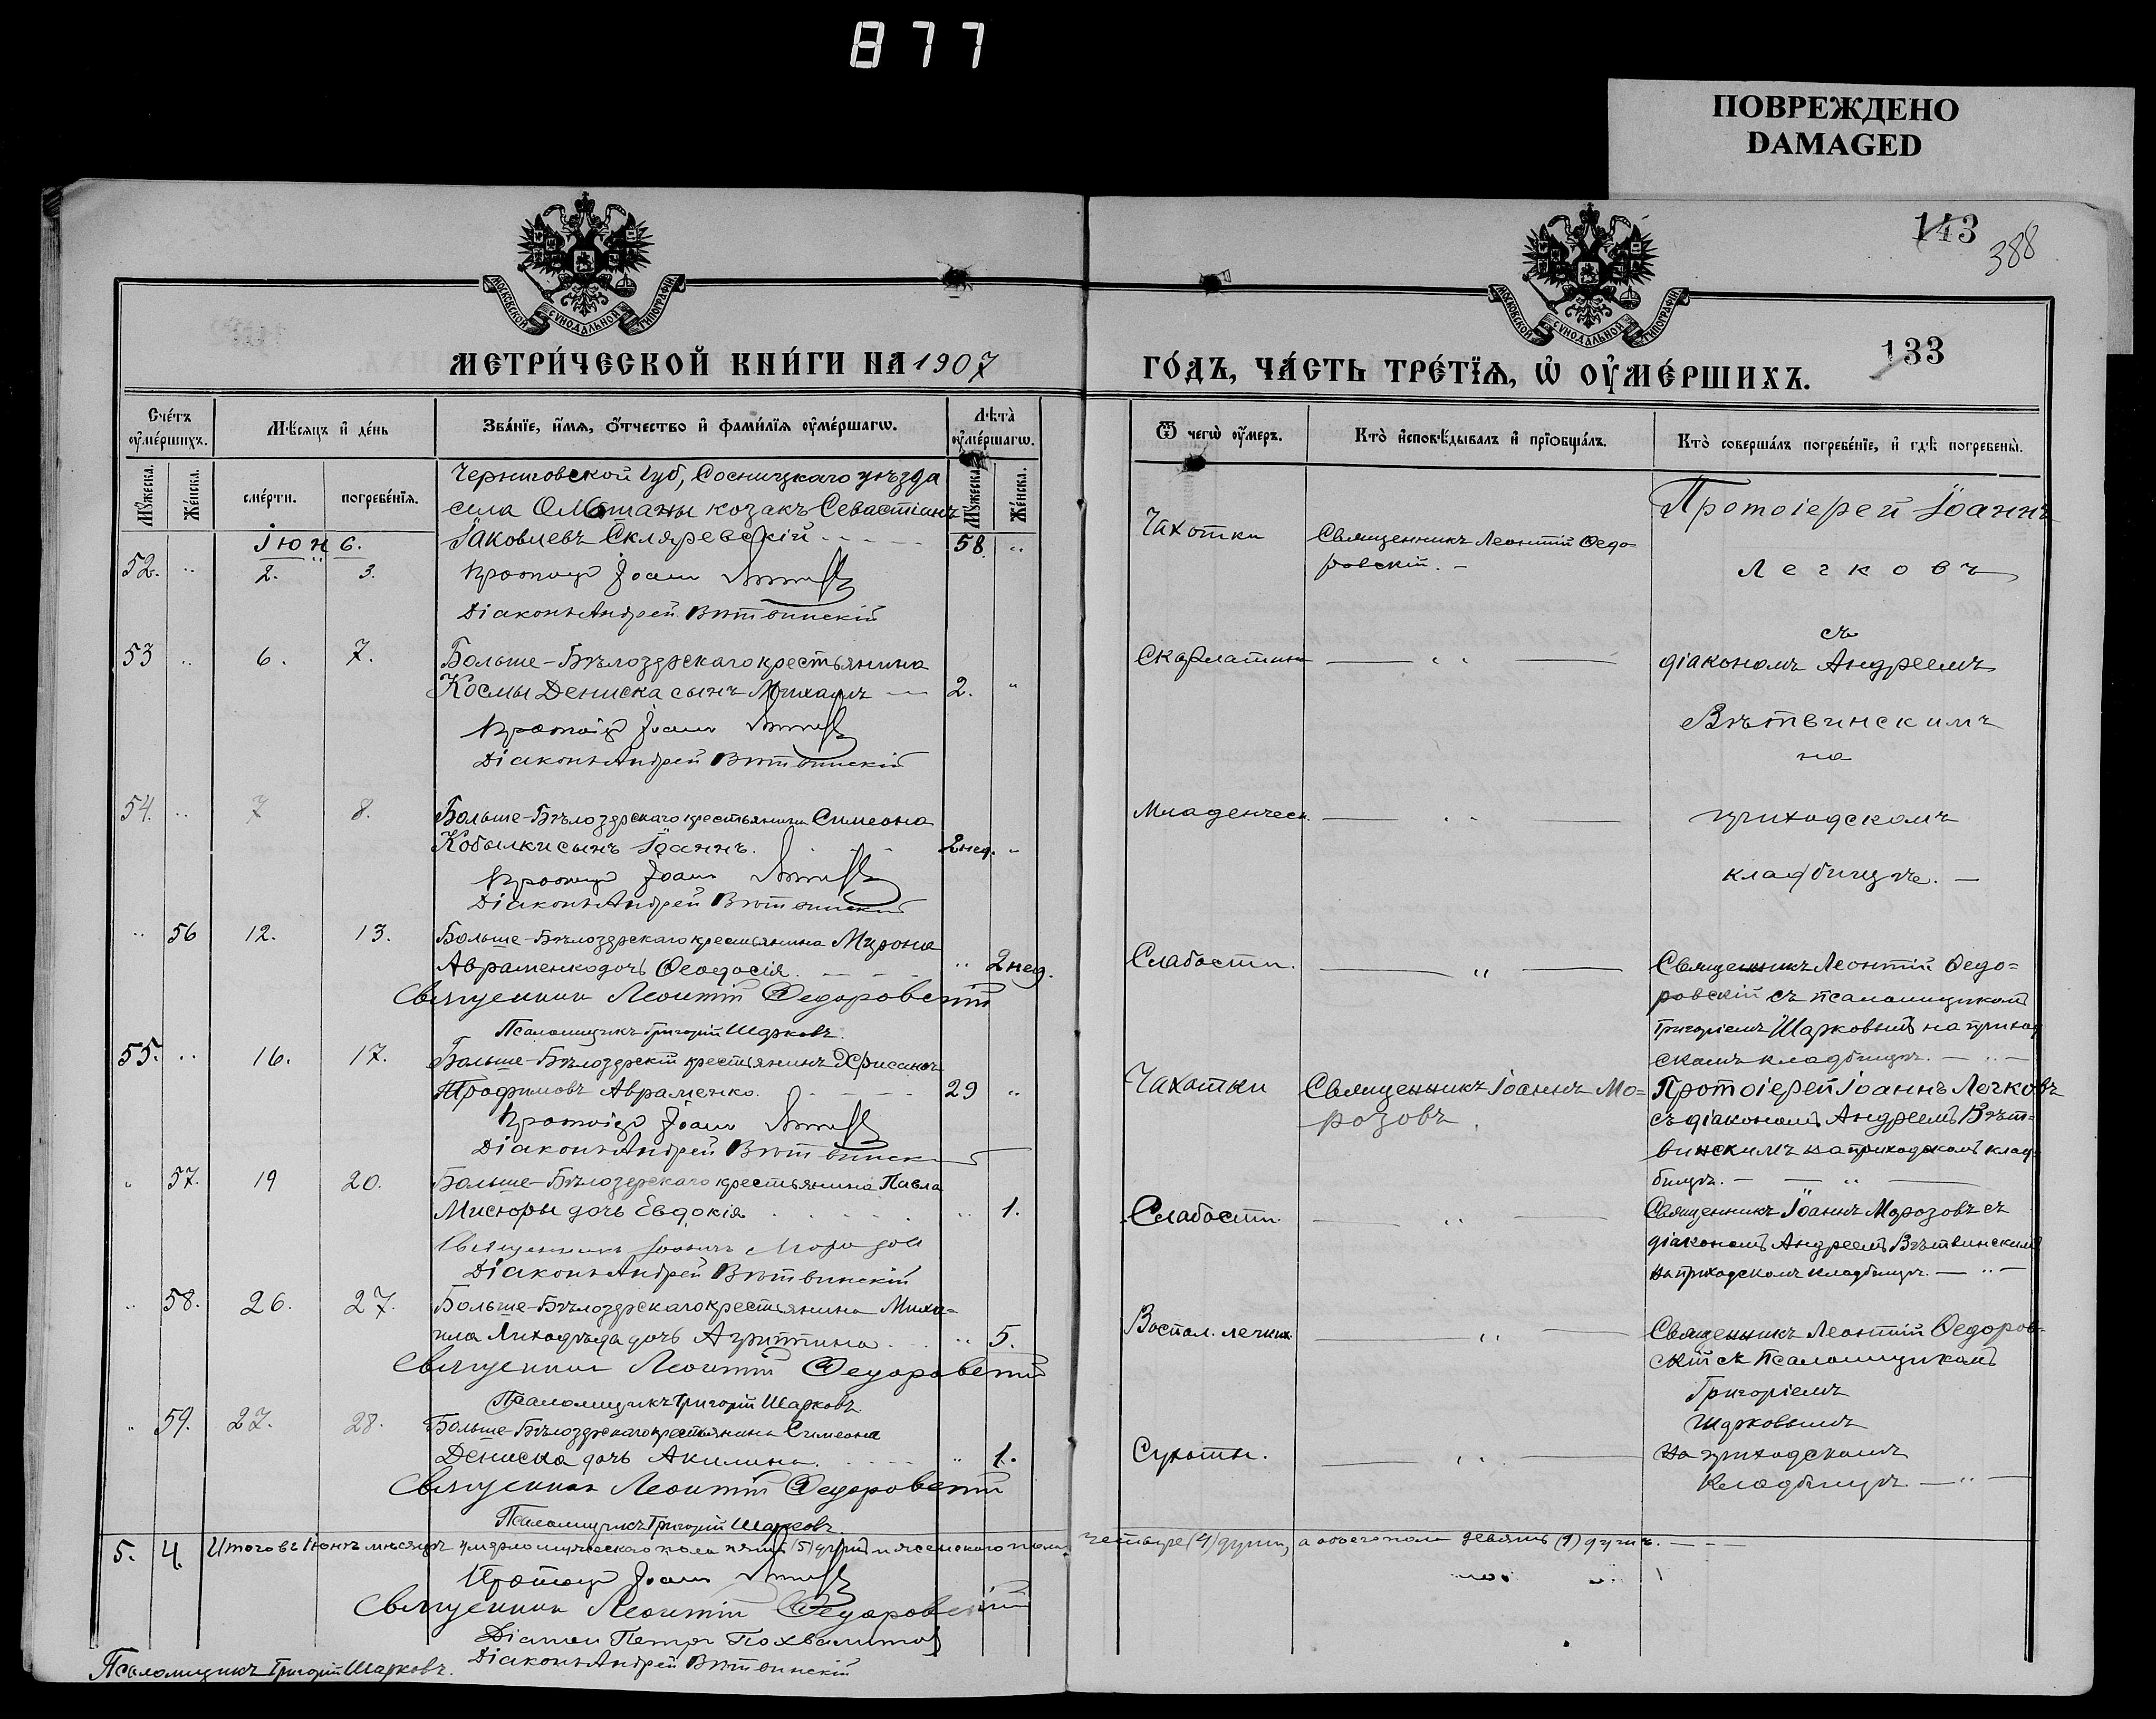 877
ПОВРЕЖДЕНО
DAMAGED
143
388
133
МОСКОВСКОЙ СѴНОДАЛЬНОЙ ТИПОГРАФІИ
МОСКОВСКОЙ СѴНОДАЛЬНОЙ ТИПОГРАФІИ
МЕТРИ́ЧЕСКОЙ КНИ́ГИ НА 1907
ГО́ДЪ, ЧА́СТЬ ТРЕ́ТЇѦ, Ѡ҆ ОУ҆МЕ́РШИХЪ.
Сче́тъ оу҆ме́ршихъ.
Мѣ́сяцъ и҆ де́нь
Зва́нїе, и҆́мѧ, о҆́тчество и҆ фами́лїѧ оу҆ме́ршагѡ.
Лѣта̀ оу҆ме́ршагѡ.
Ѿ чегѡ̀ оу҆́меръ.
Кто̀ и҆сповѣ́дывалъ и҆ прїѡбща́лъ.
Кто̀ соверша́лъ погребе́нїе, и҆ гдѣ̀ погребены̀.
Мꙋ́жеска.
Же́нска.
сме́рти.
погребе́нїѧ.
Мꙋ́жеска.
Же́нска.
Іюнь.
Черниговской губ, Сосницкаго уѣзда
села козакъ Севастіанъ
Іаковлевъ Скляревскій - - - - 58. "
52. " 2. 3.
Протоіер Іоан
Діаконъ Андрей Вѣтвинскій
Чахотки
Священникъ Леонтій Ѳедо-
ровскій. -
Протоіерей Іоаннъ
Легковъ
съ
діакономъ Андреемъ
Вѣтвинскимъ
на
приходскомъ
кладбищѣ. -
53 " 6. 7. Больше-Бѣлозерскаго крестьянина
Космы Дениска сынъ Михаилъ - 2. "
Протоіер Іоан
Діаконъ Андрей Вѣтвинскій
Скарлатины — " —
54. " 7 8. Больше-Бѣлозерскаго крестьянина Симеона
Кобылки сынъ Іоаннъ. - - 2 нед. "
Протоіер Іоан
Діаконъ Андрей Вѣтвинскій
Младенческ. — " —
" 56 12. 13. Больше-Бѣлозерскаго крестьянина Мирона
Авраменко дочь Ѳеодосія. - - - " 2 нед.
Священник Леонтій Федоровскій
Псаломщикъ Григорій Шарковъ.
Слабости. — " —
Священникъ Леонтій Ѳедо=
ровскій съ псаломщикомъ
Григоріемъ Шарковымъ на приход
скомъ кладбищѣ. - " -
55. " 16. 17. Больше-Бѣлозерскій крестьянинъ Хрисанѳъ
Трофимовъ Авраменко. - - - - 29 "
Протоіер Іоан
Діаконъ Андрей Вѣтвинск
Чахотки
Священникъ Іоаннъ Мо-
розовъ.
Протоіерей Іоаннъ Легковъ
съ діакономъ Андреемъ Вѣт=
винскимъ на приходскомъ клад
бищѣ. - - " -
" 57. 19 20. Больше-Бѣлозерскаго крестьянина Павла
Мисюры дочь Евдокія. . . . . " 1.
Священникъ Іоаннъ Морозов
Діаконъ Андрей Вѣтвинскій
Слабости. — " —
Священникъ Іоаннъ Морозовъ съ
діакономъ Андреемъ Вѣтвинскимъ
на приходскомъ кладбищѣ. - " -
" 58. 26. 27. Больше-Бѣлозерскаго крестьянина Миха-
ила Лиходѣда дочь Агриппина. . . " 5.
Священник Леонтій Федоровскій
Псаломщикъ Григорій Шарковъ.
Воспал. легких. — " —
Священникъ Леонтій Ѳедоров-
скій съ Псаломщикомъ
Григоріемъ
Шарковымъ
На приходскомъ
Кладбищѣ - " -
" 59. 27. 28. Больше-Бѣлозерскаго крестьянина Симеона
Дениска дочь Акилина. - - - - " 1.
Священник Леонтій Федоровскій
Псаломщикъ Григорій Шарковъ.
Сухоты. — " —
5. 4. Итого въ Іюнѣ мѣсяцѣ умерло мужескаго пола пять (5) душъ и женскаго пола четыре (4) души, а обоего пола девять (9) душъ. - - -
Протоіер Іоан
Священник Леонтій Федоровскій
Діакон Петръ Похвалитов
Діаконъ Андрей Вѣтвинскій
Псаломщикъ Григорій Шарковъ.